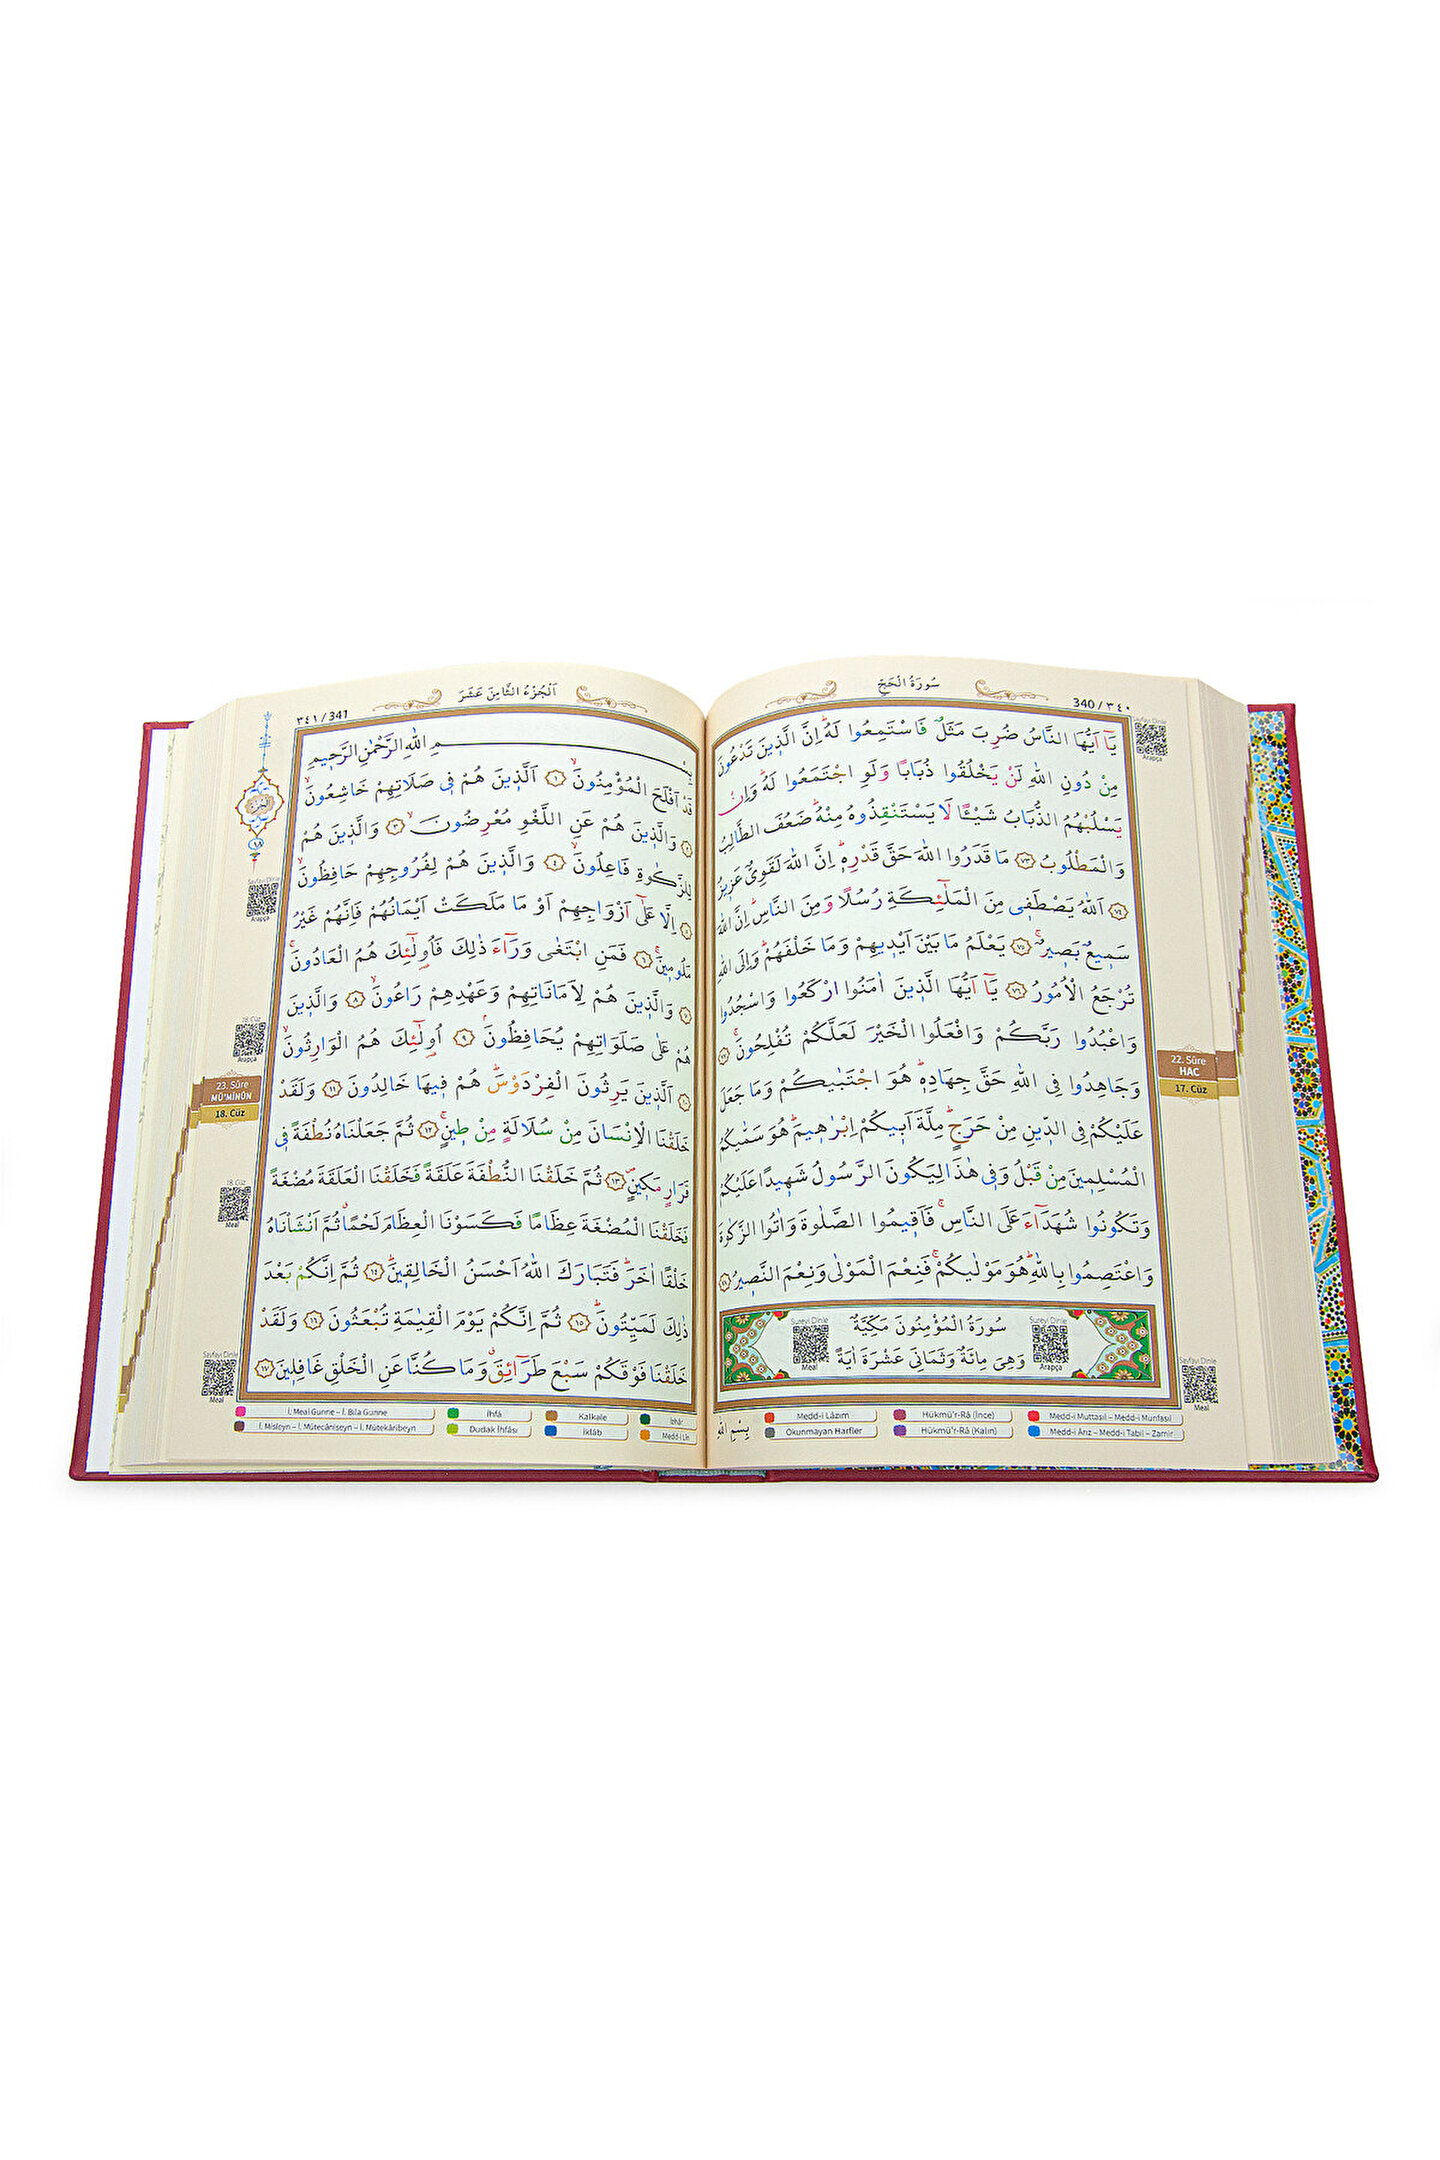 340 / ٣٤٠
سُورَةُ الْحَجِّ
يَٓا اَيُّهَا النَّاسُ ضُرِبَ مَثَلٌ فَاسْتَمِعُوا لَهُۜ اِنَّ الَّذ۪ينَ تَدْعُونَ
مِنْ دُونِ اللّٰهِ لَنْ يَخْلُقُوا ذُبَابًا وَلَوِ اجْتَمَعُوا لَهُۜ وَاِنْ
يَسْلُبْهُمُ الذُّبَابُ شَيْـًٔا لَا يَسْتَنْقِذُوهُ مِنْهُۜ ضَعُفَ الطَّالِبُ
وَالْمَطْلُوبُ ﴿٧٣﴾ مَا قَدَرُوا اللّٰهَ حَقَّ قَدْرِه۪ۜ اِنَّ اللّٰهَ لَقَوِيٌّ عَز۪يزٌ
﴿٧٤﴾ اَللّٰهُ يَصْطَف۪ي مِنَ الْمَلٰٓئِكَةِ رُسُلًا وَمِنَ النَّاسِۜ اِنَّ اللّٰهَ
سَم۪يعٌ بَص۪يرٌۚ ﴿٧٥﴾ يَعْلَمُ مَا بَيْنَ اَيْد۪يهِمْ وَمَا خَلْفَهُمْۜ وَاِلَى اللّٰهِ
تُرْجَعُ الْاُمُورُ ﴿٧٦﴾ يَٓا اَيُّهَا الَّذ۪ينَ اٰمَنُوا ارْكَعُوا وَاسْجُدُوا
وَاعْبُدُوا رَبَّكُمْ وَافْعَلُوا الْخَيْرَ لَعَلَّكُمْ تُفْلِحُونَۚ ﴿٧٧﴾
وَجَاهِدُوا فِي اللّٰهِ حَقَّ جِهَادِه۪ۜ هُوَ اجْتَبٰيكُمْ وَمَا جَعَلَ
عَلَيْكُمْ فِي الدّ۪ينِ مِنْ حَرَجٍۜ مِلَّةَ اَب۪يكُمْ اِبْرٰه۪يمَۜ هُوَ سَمّٰيكُمُ
الْمُسْلِم۪ينَ مِنْ قَبْلُ وَف۪ي هٰذَا لِيَكُونَ الرَّسُولُ شَه۪يدًا عَلَيْكُمْ
وَتَكُونُوا شُهَدَٓاءَ عَلَى النَّاسِۚ فَاَق۪يمُوا الصَّلٰوةَ وَاٰتُوا الزَّكٰوةَ
وَاعْتَصِمُوا بِاللّٰهِۜ هُوَ مَوْلٰيكُمْۚ فَنِعْمَ الْمَوْلٰى وَنِعْمَ النَّص۪يرُ ﴿٧٨﴾
سُورَةُ الْمُؤْمِنُونَ مَكِّيَّةٌ
وَهِيَ مِائَةٌ وَثَمَانِيَ عَشْرَةَ اٰيَةً
Sureyi Dinle
Meal
Sureyi Dinle
Arapça
Sayfayı Dinle
Arapça
22. Sûre
HAC
17. Cüz
Sayfayı Dinle
Meal
بِسْمِ اللّٰهِ
Medd-i Lâzım
Hükmü'r-Râ (İnce)
Medd-i Muttasıl – Medd-i Munfasıl
Okunmayan Harfler
Hükmü'r-Râ (Kalın)
Medd-i Ârız – Medd-i Tabiî – Zamir
اَلْجُزْءُ الثَّامِنَ عَشَرَ
٣٤١ / 341
بِسْمِ اللّٰهِ الرَّحْمٰنِ الرَّح۪يمِ
قَدْ اَفْلَحَ الْمُؤْمِنُونَۙ ﴿١﴾ اَلَّذ۪ينَ هُمْ ف۪ي صَلَاتِهِمْ خَاشِعُونَۙ
﴿٢﴾ وَالَّذ۪ينَ هُمْ عَنِ اللَّغْوِ مُعْرِضُونَۙ ﴿٣﴾ وَالَّذ۪ينَ هُمْ
لِلزَّكٰوةِ فَاعِلُونَۙ ﴿٤﴾ وَالَّذ۪ينَ هُمْ لِفُرُوجِهِمْ حَافِظُونَۙ
﴿٥﴾ اِلَّا عَلٰٓى اَزْوَاجِهِمْ اَوْ مَا مَلَكَتْ اَيْمَانُهُمْ فَاِنَّهُمْ غَيْرُ
مَلُوم۪ينَۚ ﴿٦﴾ فَمَنِ ابْتَغٰى وَرَٓاءَ ذٰلِكَ فَاُو۬لٰٓئِكَ هُمُ الْعَادُونَۚ
﴿٧﴾ وَالَّذ۪ينَ هُمْ لِاَمَانَاتِهِمْ وَعَهْدِهِمْ رَاعُونَۙ ﴿٨﴾ وَالَّذ۪ينَ
هُمْ عَلٰى صَلَوَاتِهِمْ يُحَافِظُونَۢ ﴿٩﴾ اُو۬لٰٓئِكَ هُمُ الْوَارِثُونَۙ
﴿١٠﴾ اَلَّذ۪ينَ يَرِثُونَ الْفِرْدَوْسَۜ هُمْ ف۪يهَا خَالِدُونَ ﴿١١﴾ وَلَقَدْ
خَلَقْنَا الْاِنْسَانَ مِنْ سُلَالَةٍ مِنْ ط۪ينٍۚ ﴿١٢﴾ ثُمَّ جَعَلْنَاهُ نُطْفَةً ف۪ي
قَرَارٍ مَك۪ينٍۖ ﴿١٣﴾ ثُمَّ خَلَقْنَا النُّطْفَةَ عَلَقَةً فَخَلَقْنَا الْعَلَقَةَ مُضْغَةً
فَخَلَقْنَا الْمُضْغَةَ عِظَامًا فَكَسَوْنَا الْعِظَامَ لَحْمًاۗ ثُمَّ اَنْشَأْنَاهُ
خَلْقًا اٰخَرَۜ فَتَبَارَكَ اللّٰهُ اَحْسَنُ الْخَالِق۪ينَۜ ﴿١٤﴾ ثُمَّ اِنَّكُمْ بَعْدَ
ذٰلِكَ لَمَيِّتُونَۜ ﴿١٥﴾ ثُمَّ اِنَّكُمْ يَوْمَ الْقِيٰمَةِ تُبْعَثُونَ ﴿١٦﴾ وَلَقَدْ
خَلَقْنَا فَوْقَكُمْ سَبْعَ طَرَٓائِقَۗ وَمَا كُنَّا عَنِ الْخَلْقِ غَافِل۪ينَ ﴿١٧﴾
Sayfayı Dinle
Arapça
18. Cüz
Arapça
23. Sûre
MÜ'MİNÛN
18. Cüz
18. Cüz
Meal
Sayfayı Dinle
Meal
İ. Meal Gunne – İ. Bila Gunne
İhfâ
Kalkale
İzhâr
İ. Misleyn – İ. Mütecâniseyn – İ. Mütekâribeyn
Dudak İhfâsı
İklâb
Medd-i Lîn